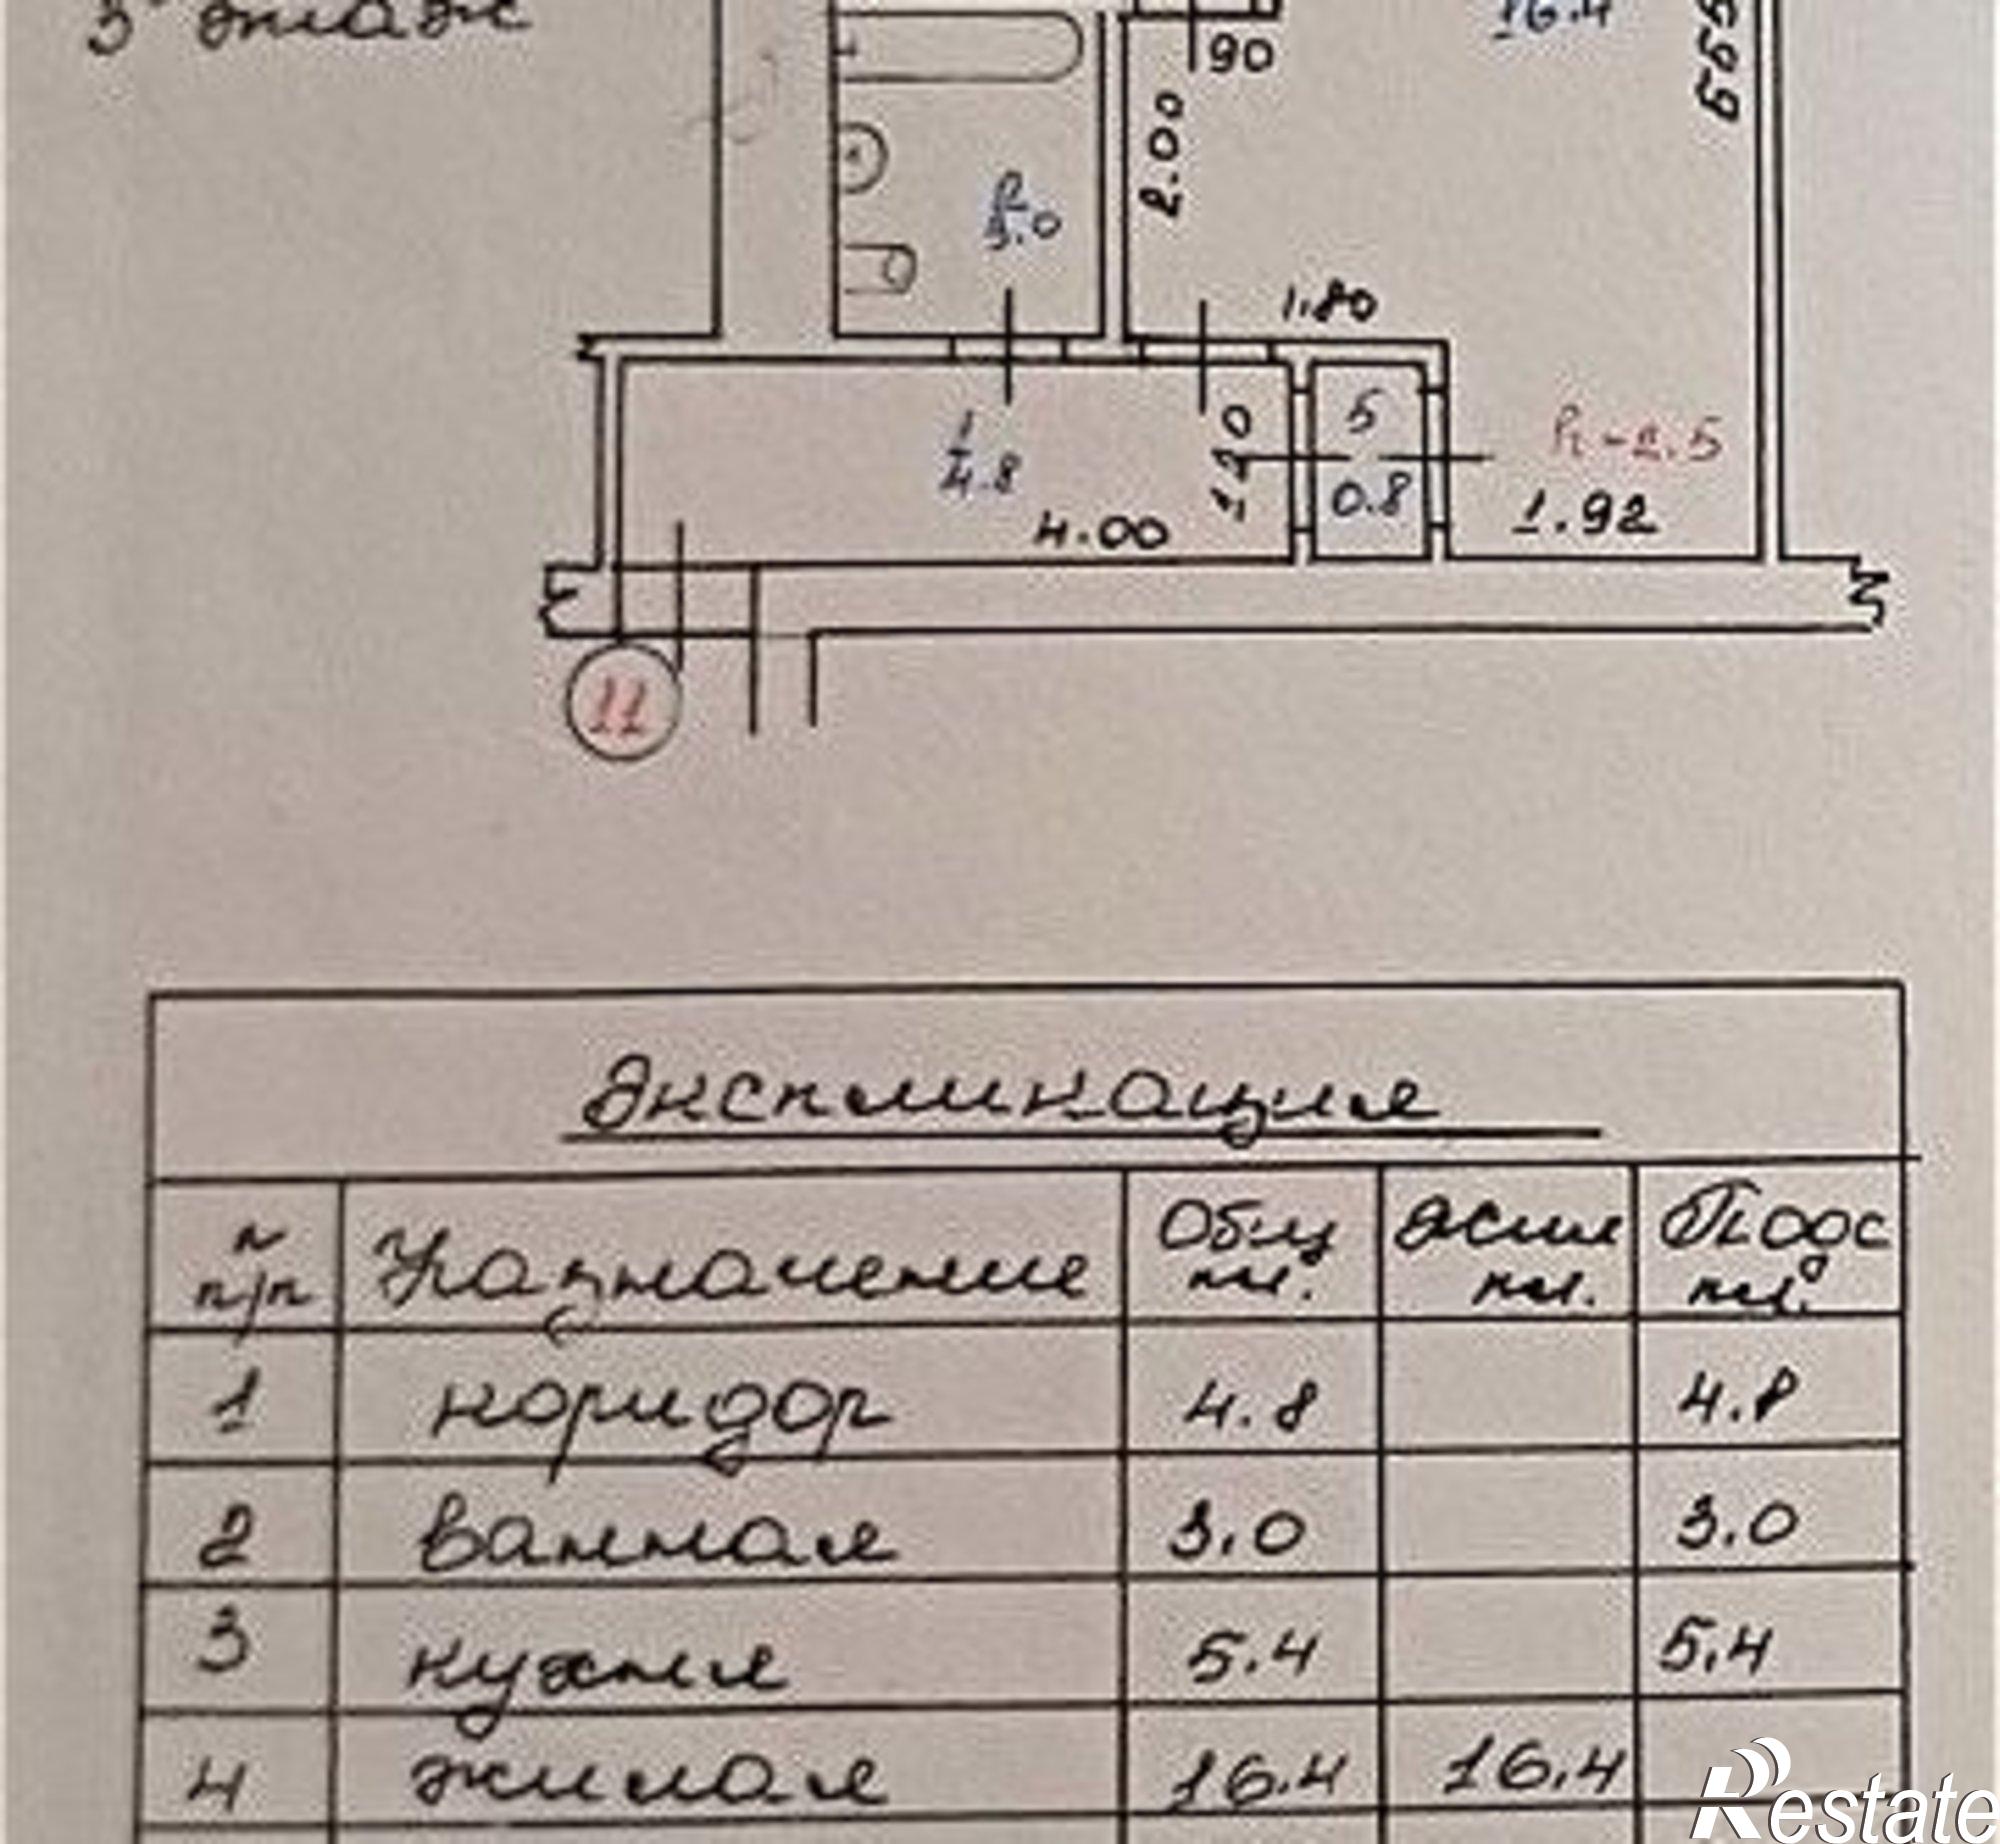 3 этаж
16.4
5.59
90
2.00
2
3.0
1.80
1
4.8
1.20
5
0.8
h-2.5
4.00
1.92
11
Экспликация
N п/п Назначение Общ пл. Жил пл. Подс пл.
1 коридор 4.8 4.8
2 ванная 3.0 3.0
3 кухня 5.4 5.4
4 жилая 16.4 16.4
Restate